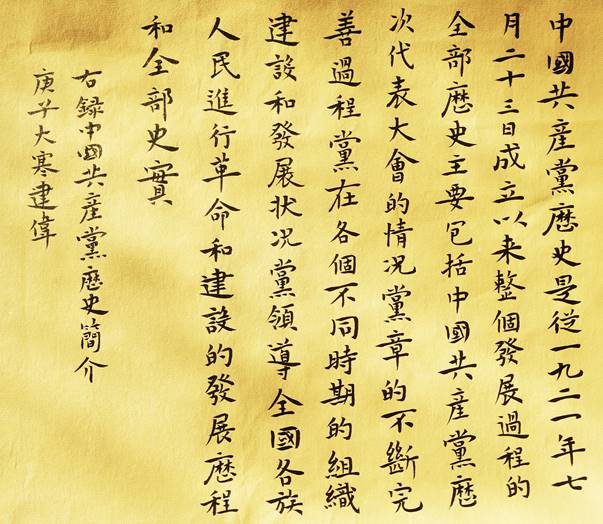 中國共産黨歷史是從一九二一年七
月二十三日成立以来整個發展過程的
全部歷史主要包括中國共産黨歷
次代表大會的情况黨章的不斷完
善過程黨在各個不同時期的組織
建設和發展狀况黨領導全國各族
人民進行革命和建設的發展歷程
和全部史實
右録中國共産黨歷史簡介
庚子大寒建偉